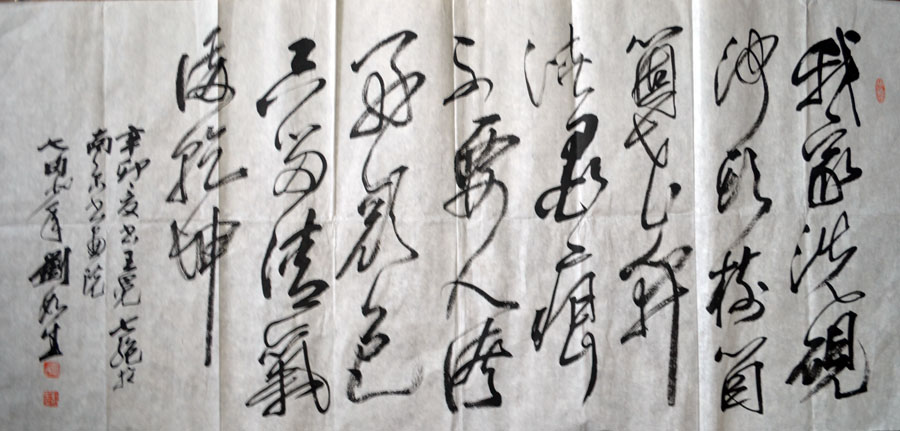 我家洗硯
池頭樹箇
箇花開
淡墨痕
不要人誇
好顏色
只留清氣
滿乾坤
辛卯夏書王冕七絕於
南京書畫院
劉